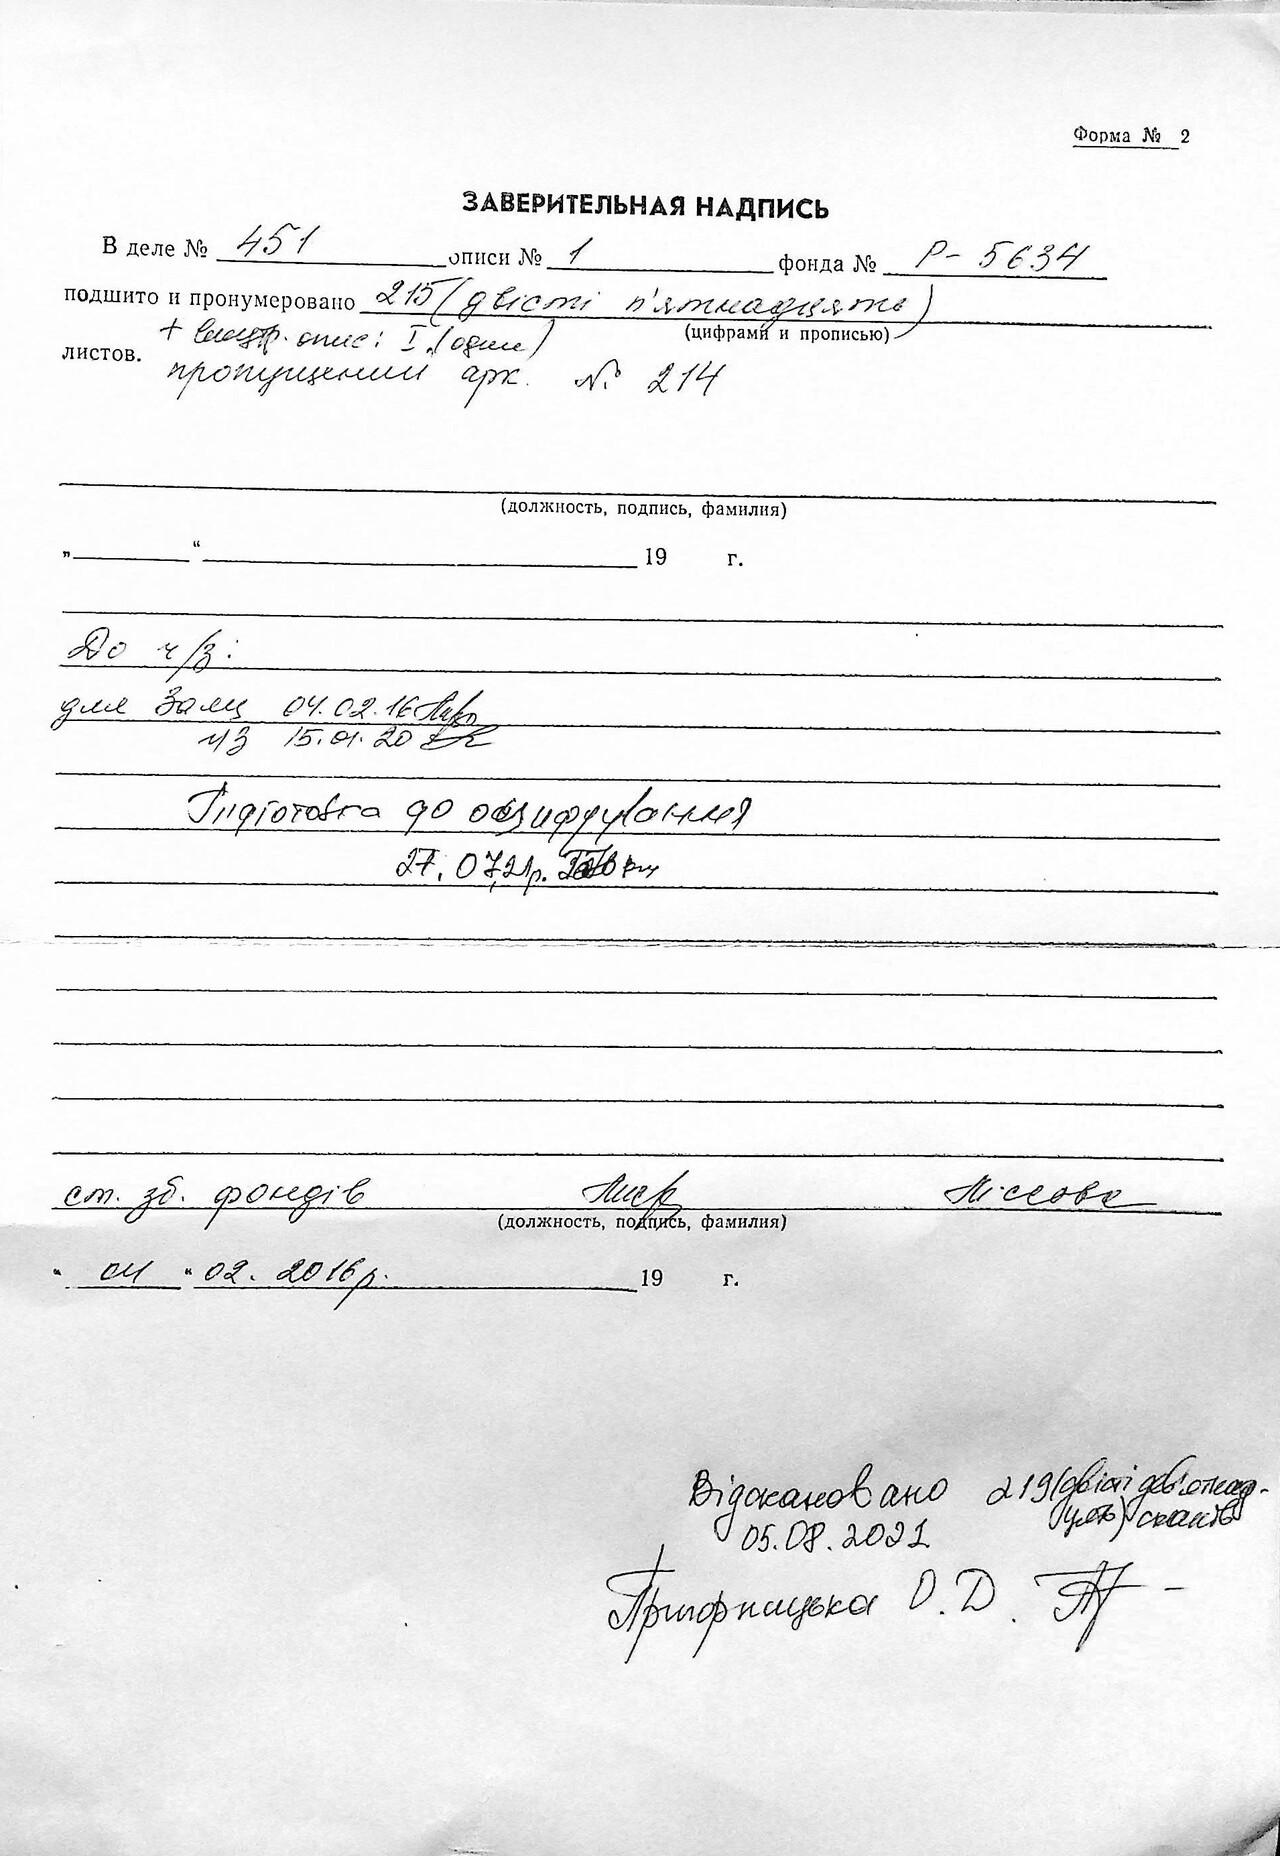 Форма № 2
ЗАВЕРИТЕЛЬНАЯ НАДПИСЬ
В деле № 451 описи № 1 фонда № Р-5634
подшито и пронумеровано 215 (двісті п'ятнадцять)
(цифрами и прописью)
+ внутр. опис: I (один)
листов.
пропущений арк. № 214
(должность, подпись, фамилия)
„ “ 19 г.
До ч/з:
для Заяц 04.02.16
ч/з 15.01.20
Підготовка до оцифрування
27.07.21р.
ст. зб. фондів
(должность, подпись, фамилия)
" 04 " 02. 2016р. 19 г.
Відскановано 219 (двісті дев'ятнад-
цять) сканів
05.08.2021
О. Д.